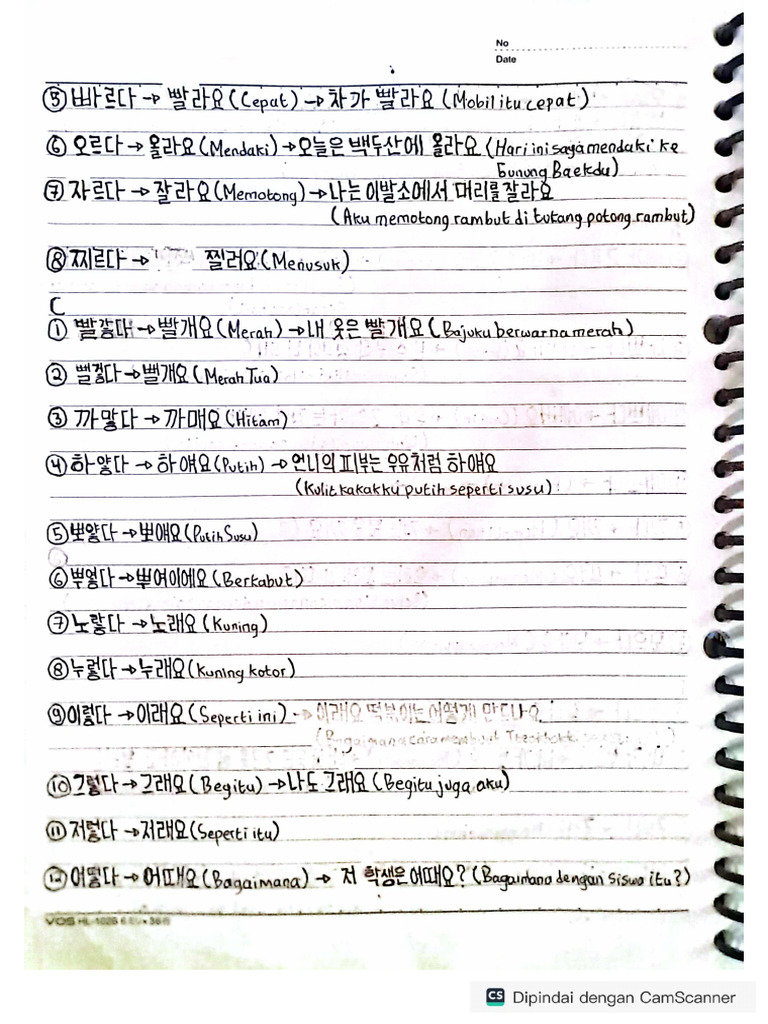 No
Date
⑤ 빠르다 → 빨라요 (Cepat) → 차가 빨라요 (Mobil itu cepat)
⑥ 오르다 → 올라요 (Mendaki) → 오늘은 백두산에 올라요 (Hari ini saya mendaki ke
Gunung Baekdu)
⑦ 자르다 → 잘라요 (Memotong) → 나는 이발소에서 머리를 잘라요
(Aku memotong rambut di tukang potong rambut)
⑧ 찌르다 → 찔러요 (Menusuk)
C
① 빨갛다 → 빨개요 (Merah) → 내 옷은 빨개요 (Bajuku berwarna merah)
② 뻘겋다 → 뻘개요 (Merah Tua)
③ 까맣다 → 까매요 (Hitam)
④ 하얗다 → 하얘요 (Putih) → 언니의 피부는 우유처럼 하얘요
(Kulit kakakku putih seperti susu)
⑤ 뽀얗다 → 뽀얘요 (Putih Susu)
⑥ 뿌옇다 → 뿌여이에요 (Berkabut)
⑦ 노랗다 → 노래요 (Kuning)
⑧ 누렇다 → 누래요 (Kuning kotor)
⑨ 이렇다 → 이래요 (Seperti ini) → 이래요 떡볶이는 어떻게 만드나요
(Bagaimana cara membuat
⑩ 그렇다 → 그래요 (Begitu) → 나도 그래요 (Begitu juga aku)
⑪ 저렇다 → 저래요 (Seperti itu)
⑫ 어떻다 → 어때요 (Bagaimana) → 저 학생은 어때요? (Bagaimana dengan siswa itu?)
VOS
CS Dipindai dengan CamScanner